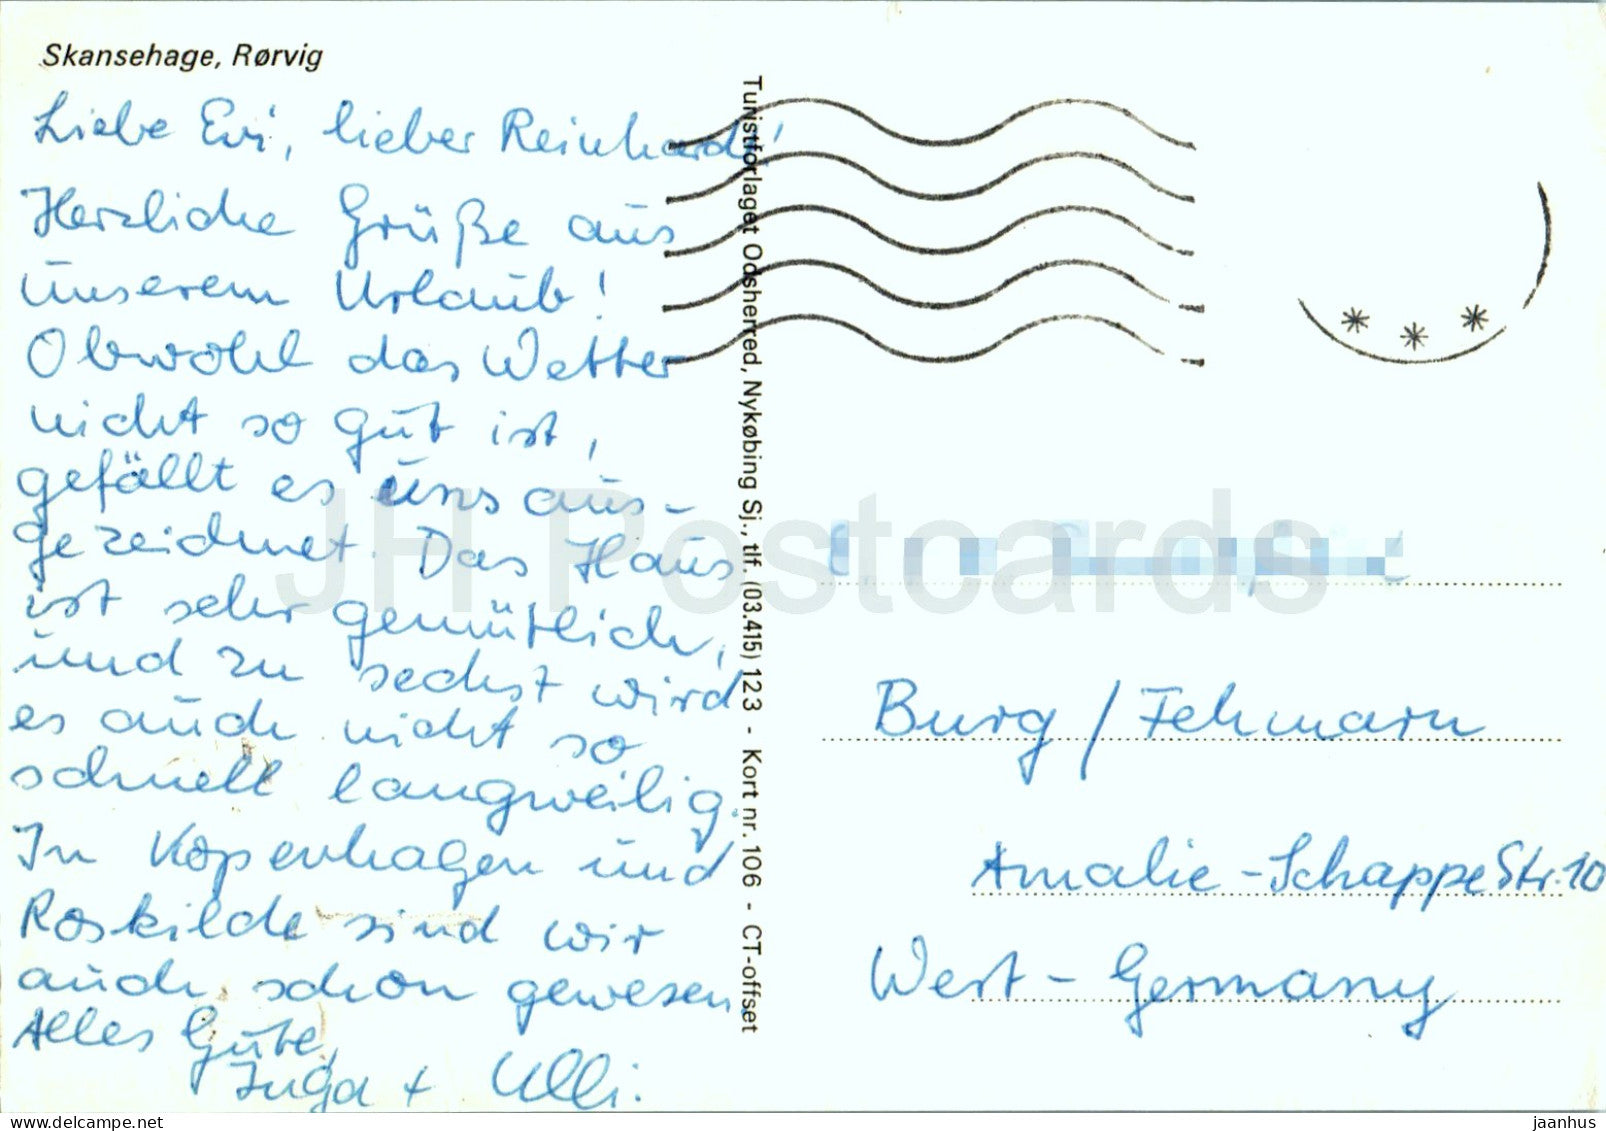 Skansehage, Rørvig
Liebe Evi, lieber Reinhard!
Herzliche Grüße aus
unserem Urlaub!
Obwohl das Wetter
nicht so gut ist,
gefällt es uns aus-
gezeichnet. Das Haus
ist sehr gemütlich,
und zu sechst wird
es auch nicht so
schnell langweilig.
In Kopenhagen und
Roskilde sind wir
auch schon gewesen.
Alles Gute,
Inga + Ulli.
Turistforlaget Odsherred, Nykøbing Sj., tlf. (03.415) 123 - Kort nr. 106 - CT-offset
Burg / Fehmarn
Amalie-Schappe Str. 10
West-Germany
JH Postcards
www.delcampe.net
jaanhus